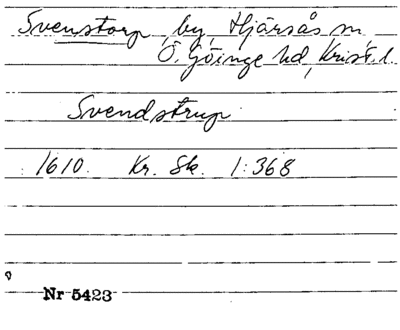 Svenstorp by, Hjärsås sn
Ö. Göinge hd, Krist. l.
Svendstrup
1610. Kr. Sk. 1:368
Nr 5423